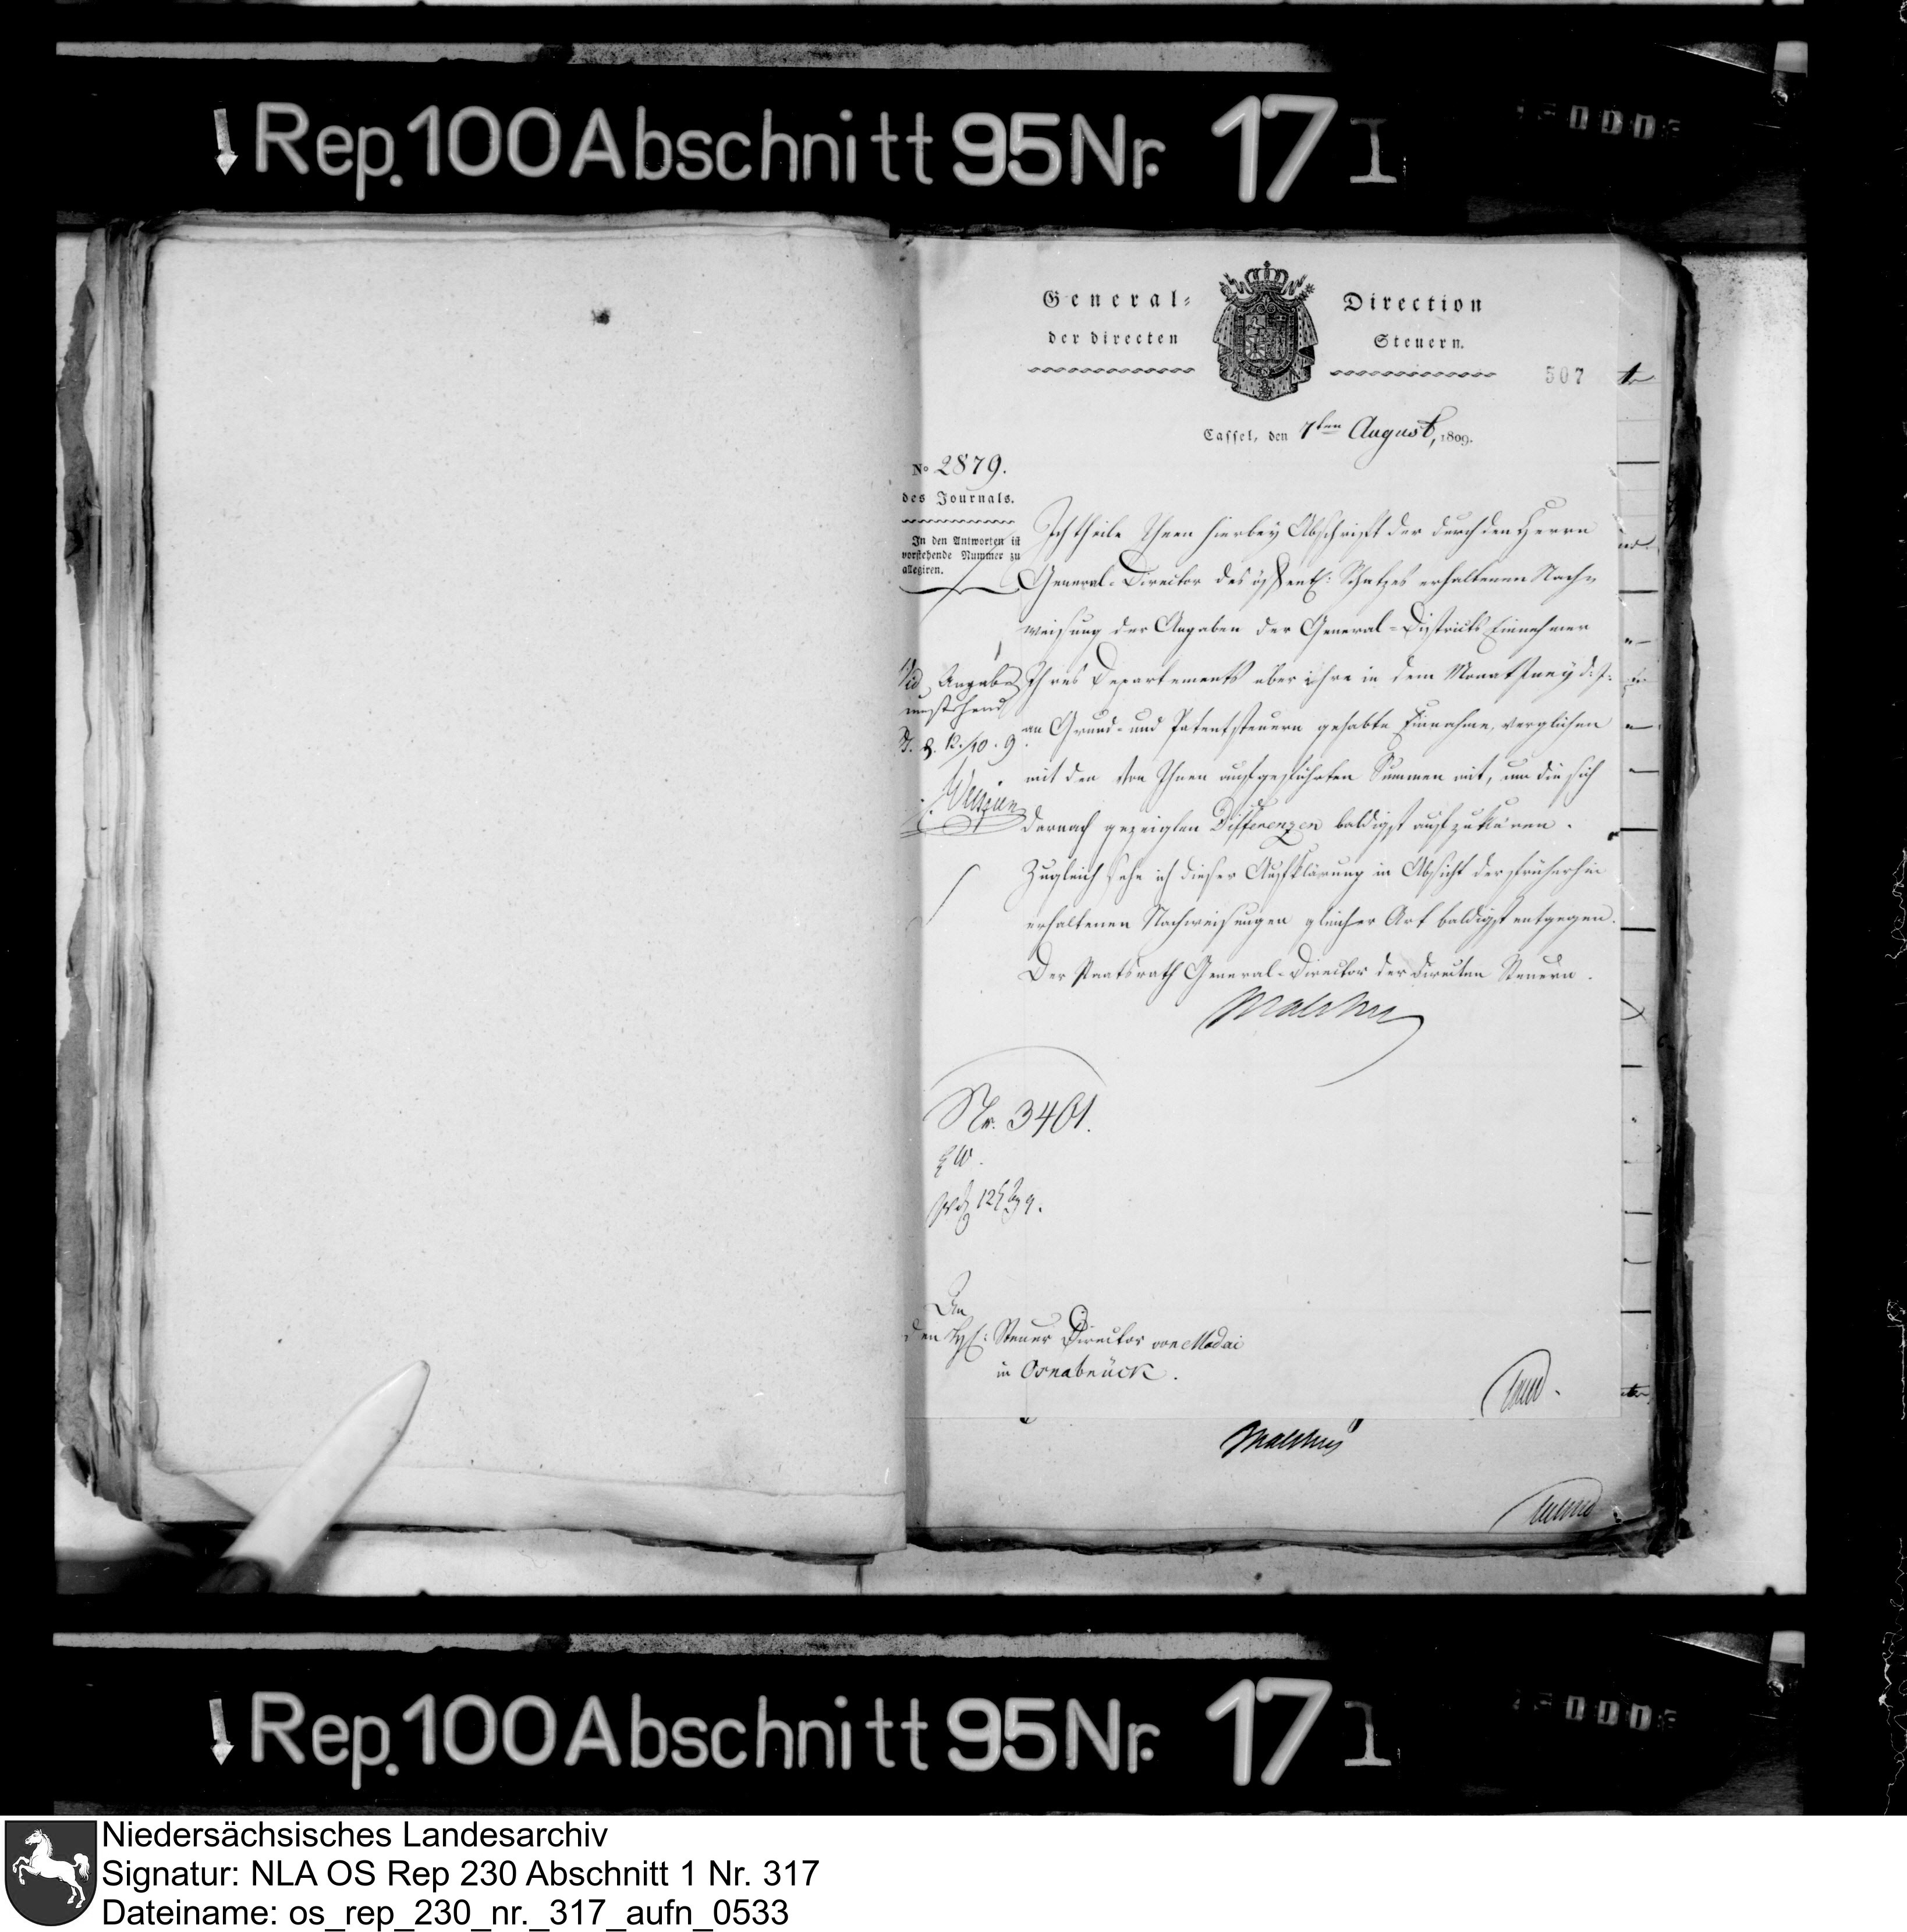 Rep. 100 Abschnitt 95 Nr. 17 I
General-Direction
der directen Steuern.
507
Cassel, den 7ten August, 1809.
No 2879.
des Journals.
In den Antworten ist
vorstehende Nummer zu
allegiren.
Ich theile Ihnen hierbey Abschrift der durch den Herrn
General-Director des öffentl: Schatzes erhaltenen Nach-
weisung der Angaben der General-Districts Einnehmer
Ihres Departements über ihre in dem Monat
an Grund- und Patentsteuern gehabte Einnahme, verglichen
mit den von Ihnen aufgeführten Summen mit, um die sich
darnach gezeigten Differenzen baldigst aufzuklären.
Zugleich sehe ich dieser Aufklärung in Absicht der früherhin
erhaltenen Nachweisungen gleicher Art baldigst entgegen.
Der Staatsrath General-Director der directen Steuern.
Malchus
Vid Angabe
umstehend
Nr. 3401.
An
den Steuer Director von Madai
in Osnabrück.
Malchus
Rep. 100 Abschnitt 95 Nr. 17 1
Niedersächsisches Landesarchiv
Signatur: NLA OS Rep 230 Abschnitt 1 Nr. 317
Dateiname: os_rep_230_nr._317_aufn_0533